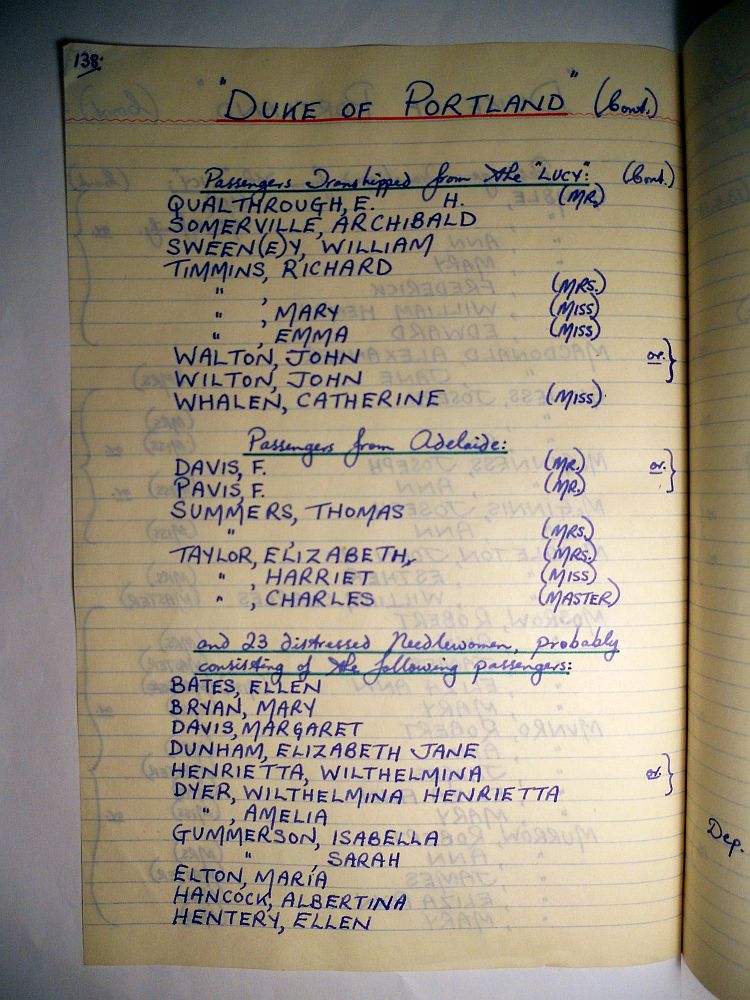 138.
"DUKE OF PORTLAND" (Cont.)
Passengers Transhipped from the "LUCY": (Cont.)
QUALTHROUGH, E. H. (MR.)
SOMERVILLE, ARCHIBALD
SWEEN(E)Y, WILLIAM
TIMMINS, RICHARD
" , (MRS.)
" , MARY (MISS)
" , EMMA (MISS)
WALTON, JOHN or. }
WILTON, JOHN
WHALEN, CATHERINE (MISS)
Passengers from Adelaide:
DAVIS, F. (MR.) or. }
PAVIS, F. (MR.)
SUMMERS, THOMAS
" , (MRS.)
TAYLOR, ELIZABETH, (MRS.)
" , HARRIET (MISS)
" , CHARLES (MASTER)
and 23 distressed Needlewomen, probably
consisting of the following passengers:
BATES, ELLEN
BRYAN, MARY
DAVIS, MARGARET
DUNHAM, ELIZABETH JANE
HENRIETTA, WILTHELMINA or. }
DYER, WILTHELMINA HENRIETTA
" , AMELIA
GUMMERSON, ISABELLA
" , SARAH
ELTON, MARIA
HANCOCK, ALBERTINA
HENTERY, ELLEN
Dep.